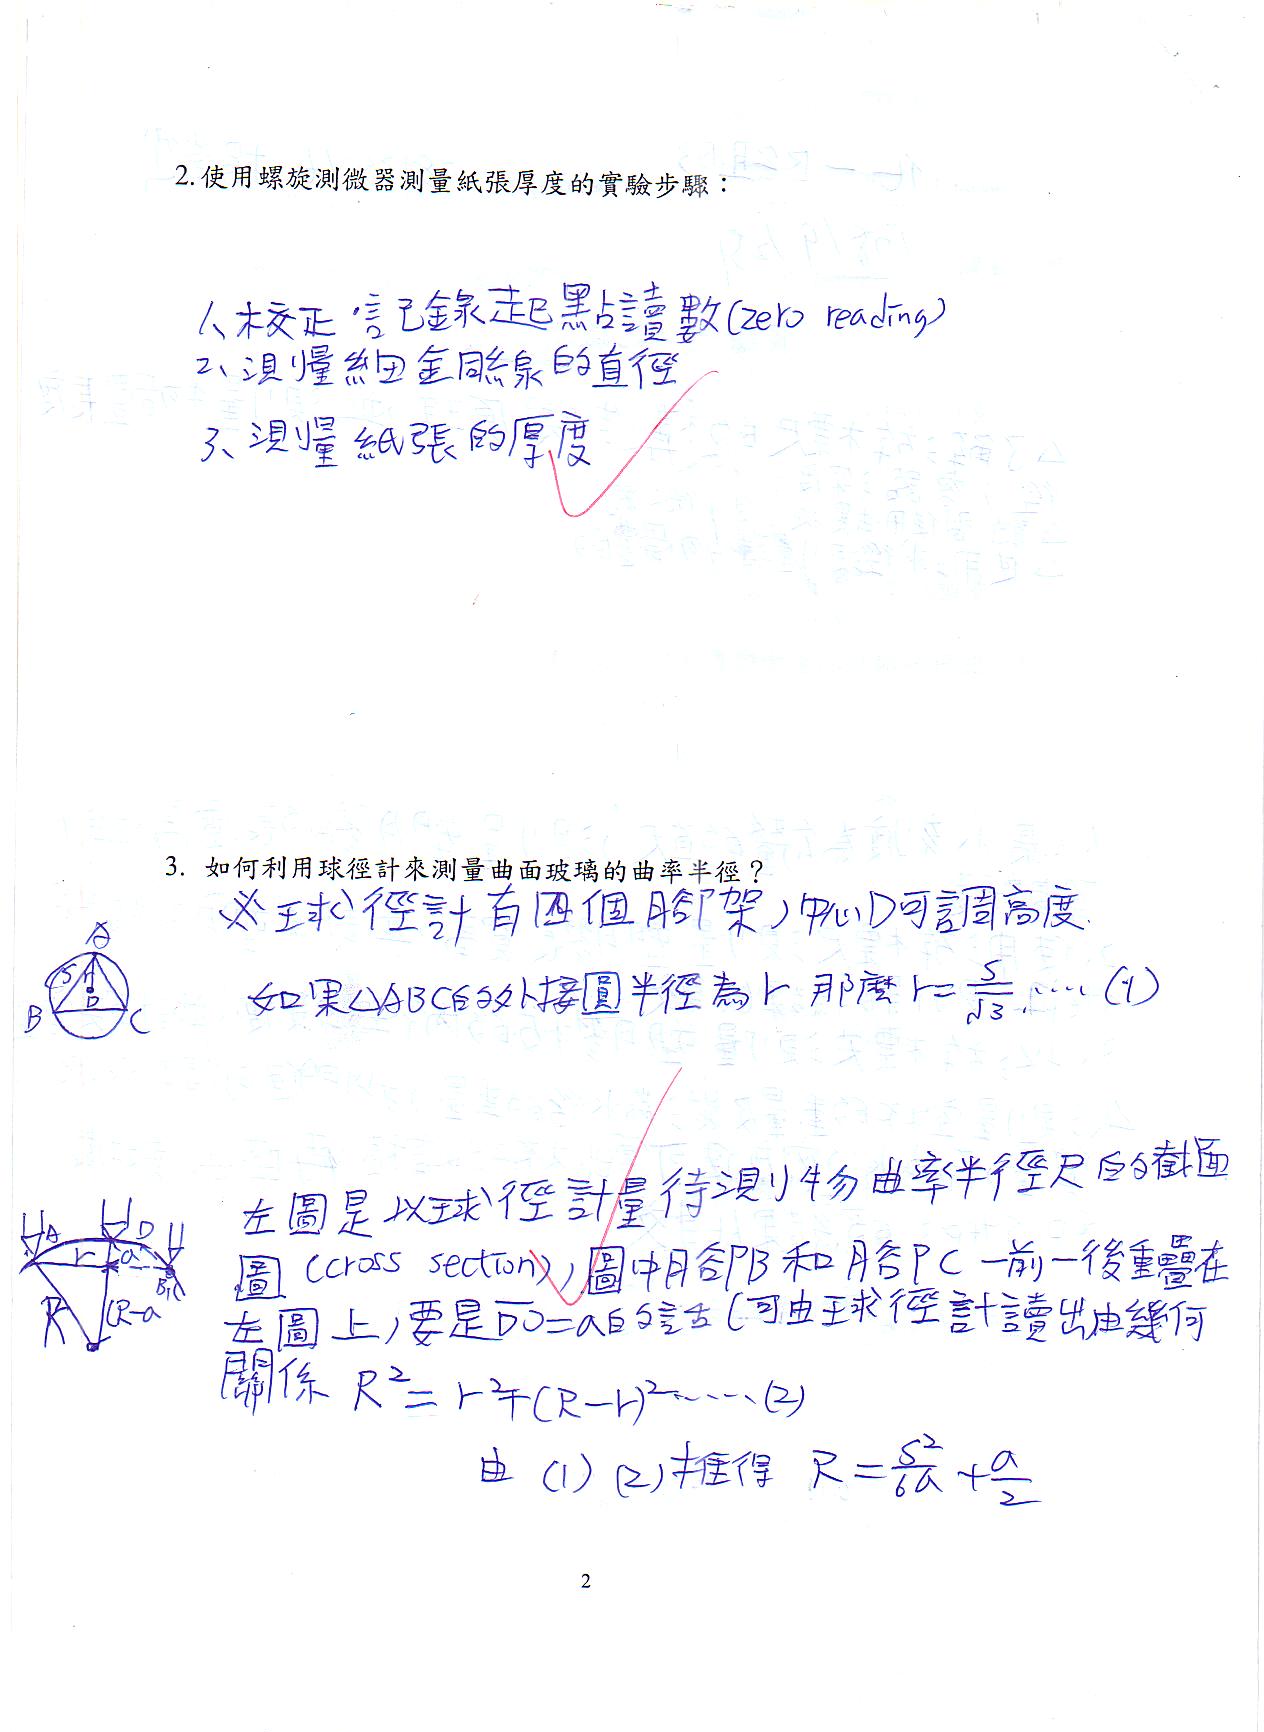 2.使用螺旋測微器測量紙張厚度的實驗步驟：
1、校正,記錄起點讀數(zero reading)
2、測量細金屬線的直徑
3、測量紙張的厚度
3. 如何利用球徑計來測量曲面玻璃的曲率半徑？
※球徑計有四個腳架,中心D可調高度.
A
S
D
B
C
如果△ABC的外接圓半徑為r 那麼r=S/√3 ..... (1)
左圖是以球徑計量待測物曲率半徑尺的截面
圖(cross section),圖中腳B和腳C一前一後重疊在
左圖上,要是DO=a的話(可由球徑計讀出由幾何
關係 R²=r²+(R-r)²......(2)
A
D
r
a
B,C
R
(R-a
由 (1) (2)推得 R=S²/6a+a/2
2